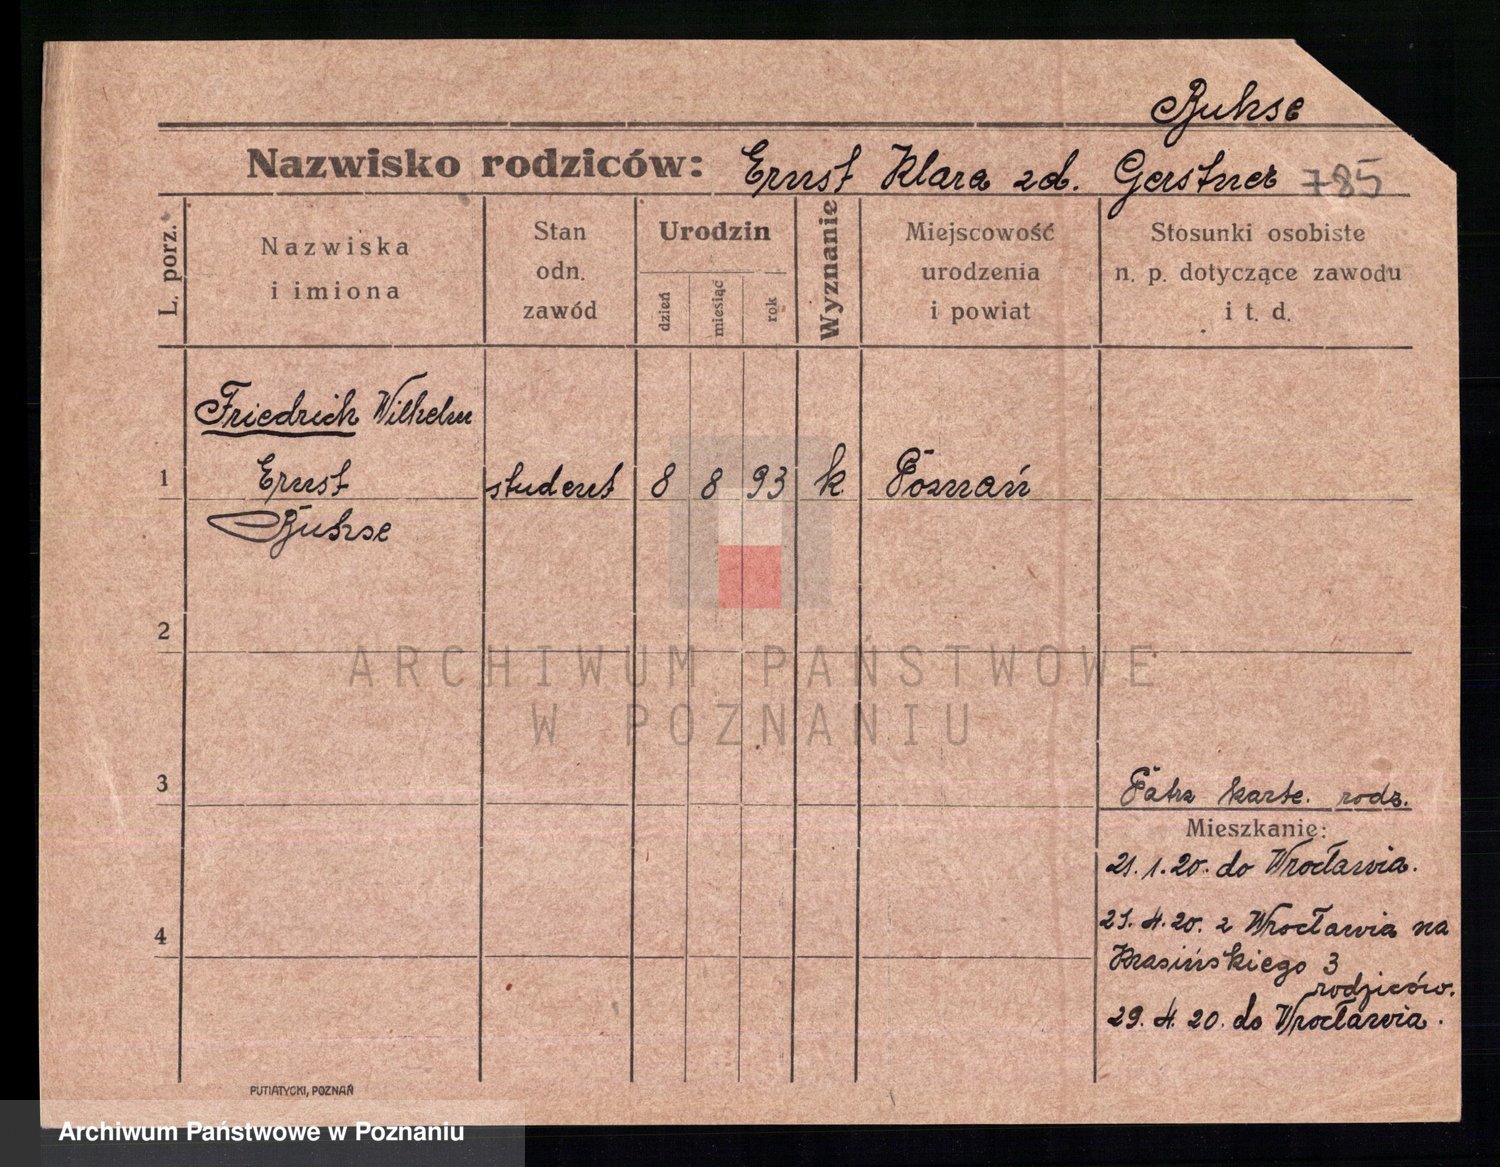 Bukse
Nazwisko rodziców: Ernst Klara zd. Gerstner 785
L. porz.
Nazwiska
i imiona
Stan
odn.
zawód
Urodzin
dzień
miesiąc
rok
Wyznanie
Miejscowość
urodzenia
i powiat
Stosunki osobiste
n. p. dotyczące zawodu
i t. d.
Friedrich Wilhelm
1 Ernst student 8 8 93 k Poznań
Bukse
2
ARCHIWUM PAŃSTWOWE
W POZNANIU
3
Patrz karte. rodz.
Mieszkanie:
21. 1. 20. do Wrocławia.
4
21. 4. 20. z Wrocławia na
Krasińskiego 3
rodziców.
29. 4. 20. do Wrocławia.
PUTIATYCKI, POZNAŃ
Archiwum Państwowe w Poznaniu